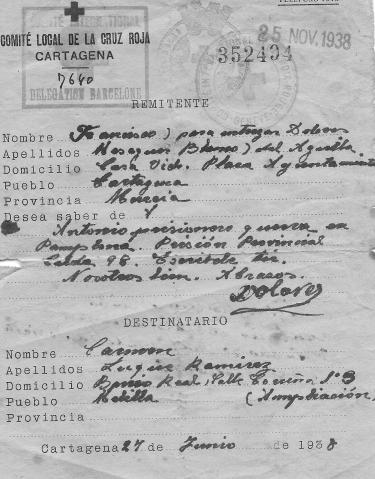 TELEFONO
COMITÉ INTERNATIONAL
COMITÉ LOCAL DE LA CRUZ ROJA
CARTAGENA
7640
DELEGATION BARCELONE
25 NOV. 1938
352494
REMITENTE
Nombre Francisco) para entregar Dolores
Apellidos Mosquera Blanco) del Aguila
Domicilio Casa Vido. Plaza Ayuntamiento
Pueblo Cartagena
Provincia Murcia
Desea saber de
Antonio prisionero guerra en
Pamplona. Prisión Provincial
Celda 96. Escribele
Nosotros bien. Abrazos.
Dolores
DESTINATARIO
Nombre Carmen
Apellidos Ramirez
Domicilio Real, Calle nº 3
Pueblo Melilla (Ampliación)
Provincia
Cartagena 27 de Junio de 1938